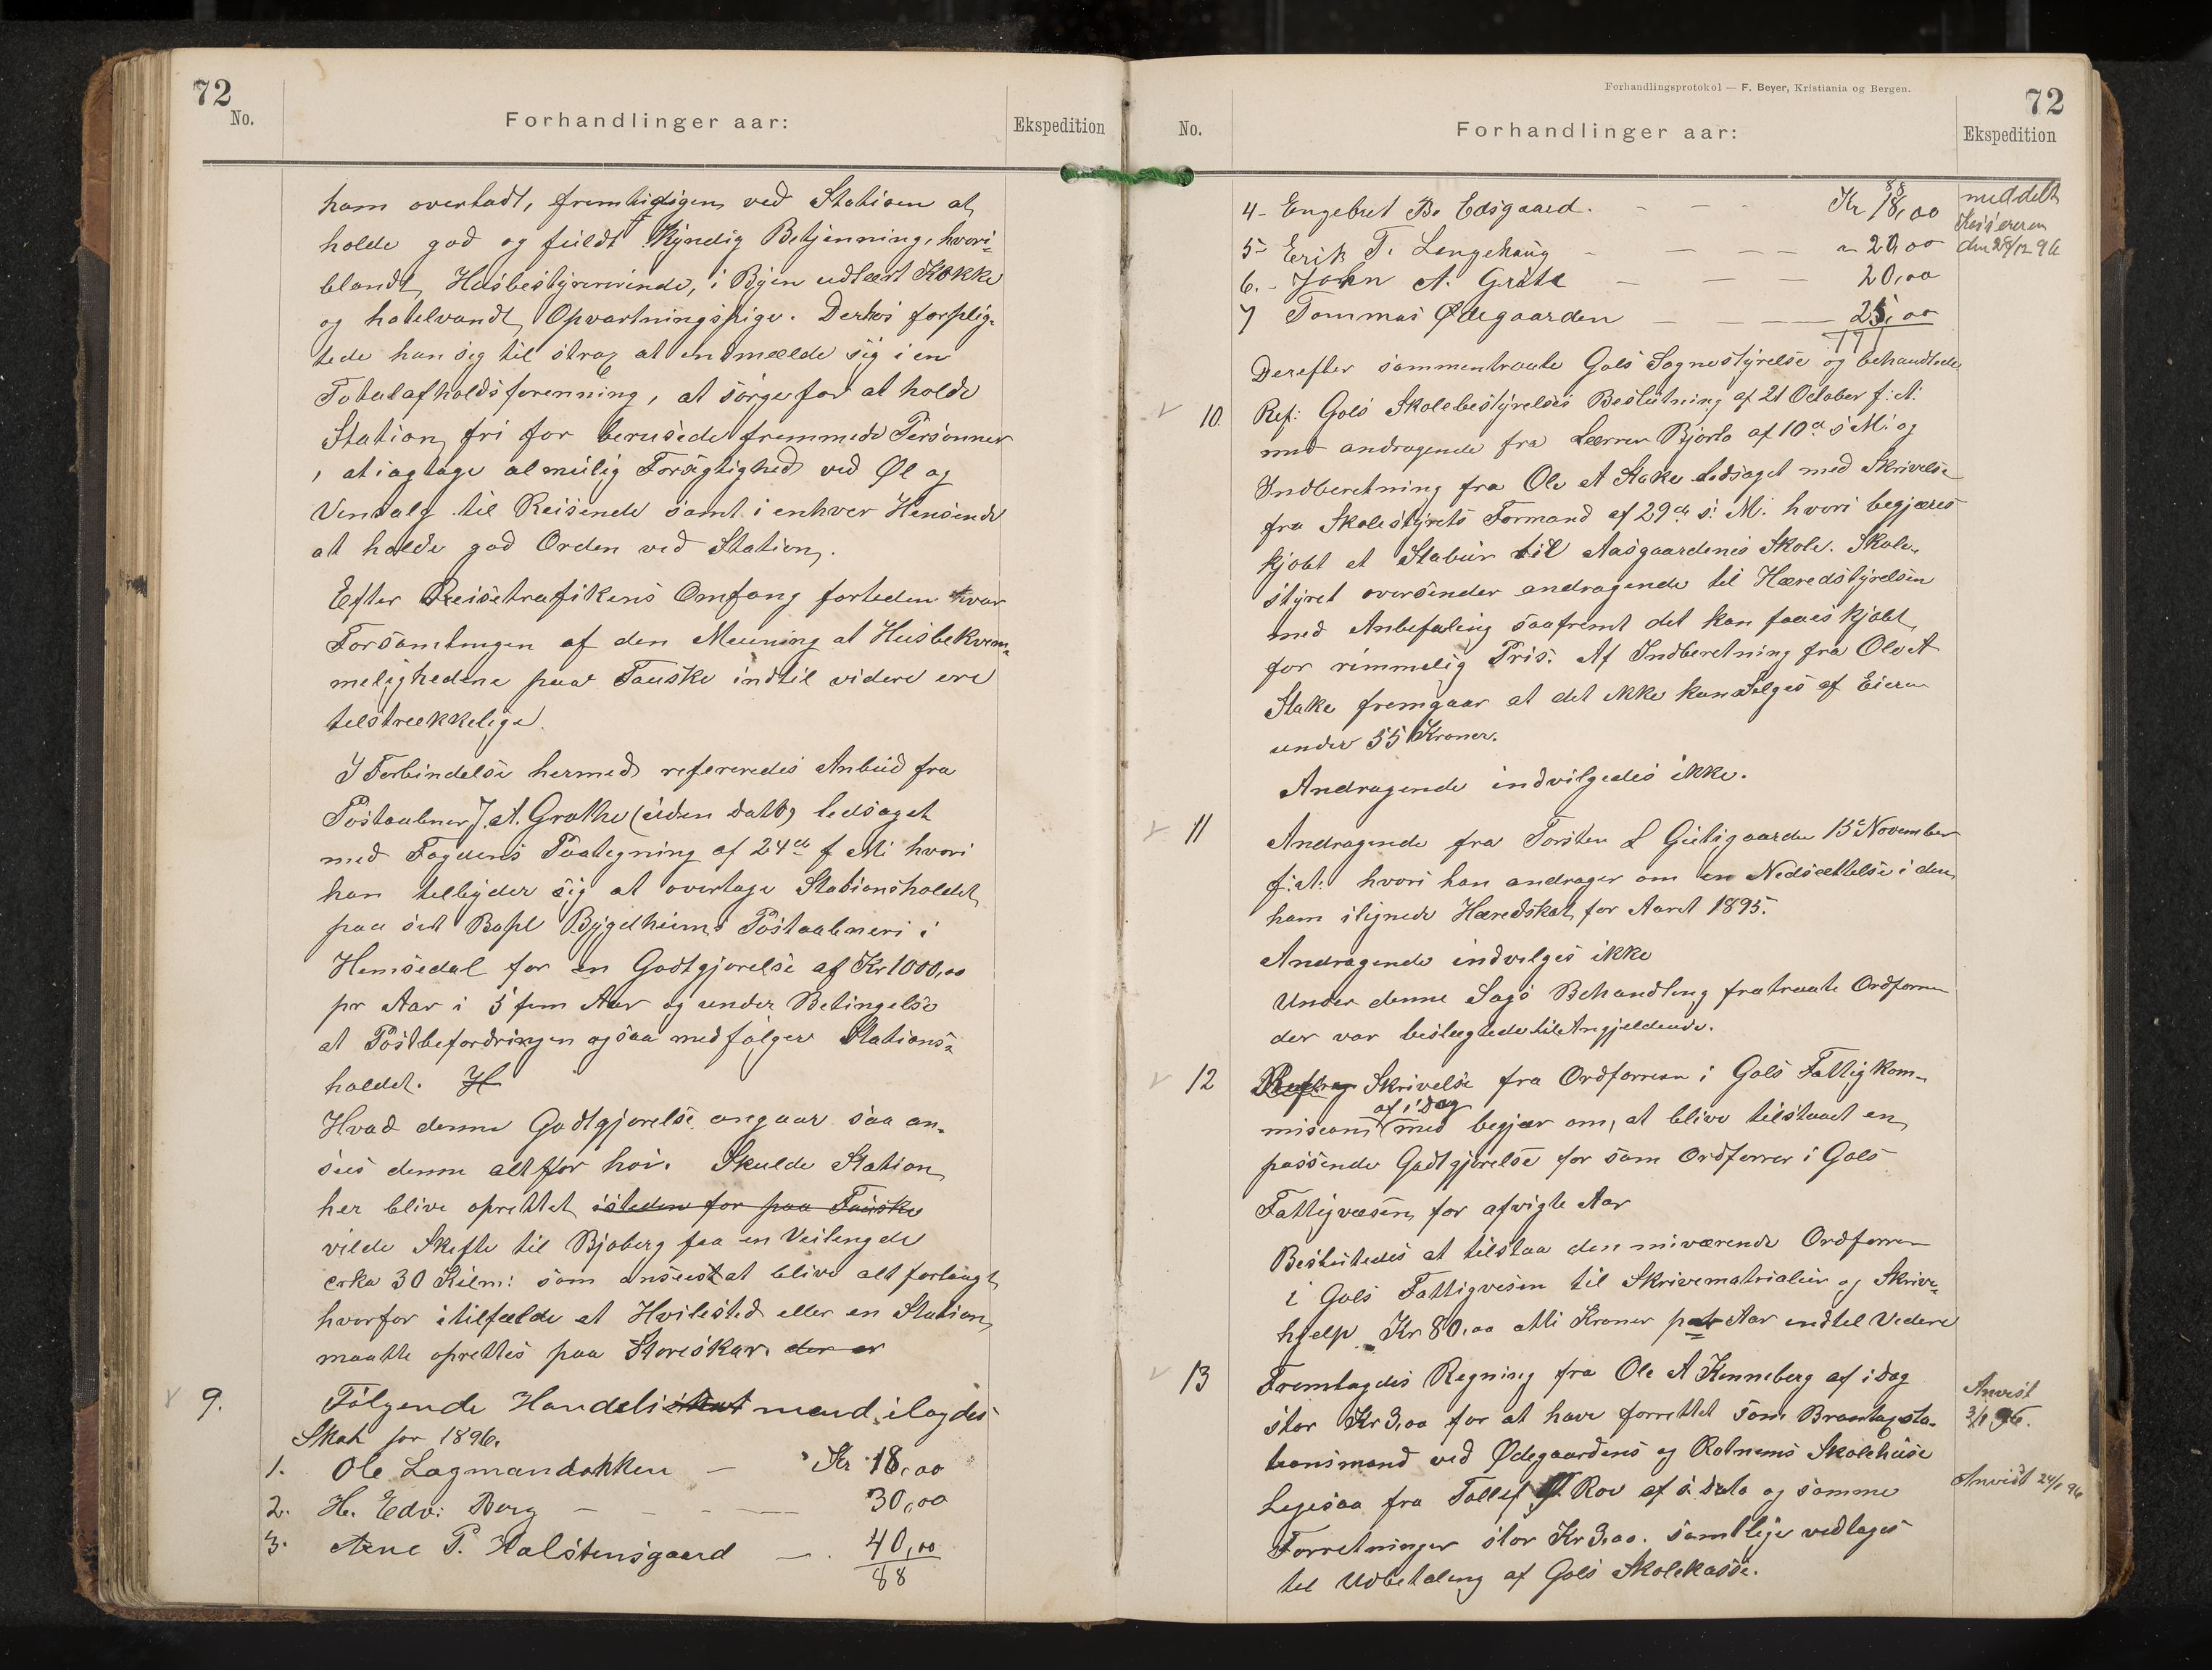 72
No.
Forhandlinger aar:
Ekspedition
ham overladt, fremtidigen ved Stationen at
holde god og fuldt kyndig Betjenning, hvori-
blandt Husbestyrerinde, i Byen udlært Kokke
og hotelvandt Opvartningspige. Derhos forplig-
tede han sig til strax at indmælde sig i en
Totalafholdsforenning, at sørge for at holde
Station fri for berusede fremmede Personner
, at iagtage almulig Forsigtighed ved Øl og
Vinsalg til Reisende samt i enhver Henseende
at holde god Orden ved Station.
Efter Reisetrafikens Omfang forteden var
Forsamlingen af den Meuning at Husbekvem-
melighedene paa Fauske indtil videre ere
telstrækkelige.
I Forbindelse hermed refereredes Anbud fra
Postaabner J. A. Grøthe (uden dato) ledsaget
med Fogdens Paategning af 24de f Mi hvori
han telbyder sig at overtage Stationsholdet
paa sit Bopel Bygdheims Postaabneri i
Hemsedal for en Godtgjørelse af Kr 1000,00
pr Aar i 5 fem Aar og under Betingelse
at Postbefordringen ogsaa medfølger Stations-
holdet. H
Hvad denne Godtgjørelse angaar saa an-
sees denne altfor høi. Skulde Station
her blive oprettet isteden for paa Fauske
vilde Skifte til Bjøberg faa en Veilengde
cirka 30 Kilm: som ansees at blive alt forlangt
hvorfor i tilfælde et Hvilested eller en Station
maatte oprettes paa Storeskar. der er
9.
Følgende Handelsmænd ilagdes
Skat for 1896.
1. Ole Lagmandokken — Kr 18,00
2. H. Edv: Berg — — — 30,00
3. Arne P. Halstensgaard — 40,00
88
Forhandlingsprotokol — F. Beyer, Kristiania og Bergen.
72
No.
Forhandlinger aar:
Ekspedition
88
4- Engebret B. Eidsgaard. - — - Kr 18,00
meddelt
Kasereren
den 28/12 96
5- Erik T. Lengehaug - — — " 20,00
6.- John A. Grøte — — — 20,00
7 Tommas Ødegaarden — — — 25,00
171
Derefter sammentraate Gols Sognestyrelse og behandlede
10. Ref: Gols Skolebestyrelses Beslutning af 21 October f: A:
med andragende fra Lærrer Bjørlo af 10de s M: og
Indberetning fra Ole A Stake ledsaget med Skrivelse
fra Skolestyrets Formand af 29de s: M: hvori begjæres
kjøbt et Stabur til Aasgaardenes Skole. Skole-
styret oversender andragende til Hæredstyrelsen
med Anbefaling saafremt det kan faaes kjøbt
for rimmelig Pris. Af Indberetning fra Ole A
Stake fremgaar at det ikke kan selges af Eieren
under 55 Kroner.
Andragende indvilgedes ikke.
11 Andragende fra Torsten L Guligaarden 15de November
f: A: hvori han andrager om en Nedsættelse i den
ham ilignede Hæredskat for Aaret 1895.
Andragende indvilges ikke
Under denne Sags Behandling fratraate Ordforren
der var beslægtede til Angjeldende.
12 Skrivelse fra Ordforreren i Gols Fattigkom-
af i Dag
misiom med begjær om, at blive tilstaaet en
passende Godtgjørelse for som Ordforrer i Gols
Fattigvæsen for afvigte Aar
Beslutedes at tilstaa den niværende Ordforren
i Gols Fattigvesen til Skrivematrialier og Skrive-
hjelp Kr 80.00 otti Kroner pr Aar indtel Videre
13 Fremlagdes Regning fra Ole A Kinneberg af i dag
Anvist
3/1 96.
stor Kr 3,00 for at have forrettet som Brantagsta-
tionsmand ved Ødegaardens og Rotnems Skolehuse
Legesaa fra Tollef T. Rov af s. dato og samme
Anvist 24/1 96
Forretninger stor Kr 3,00. samtlige vedtages
til Udbetaling af Gols Skolekasse.